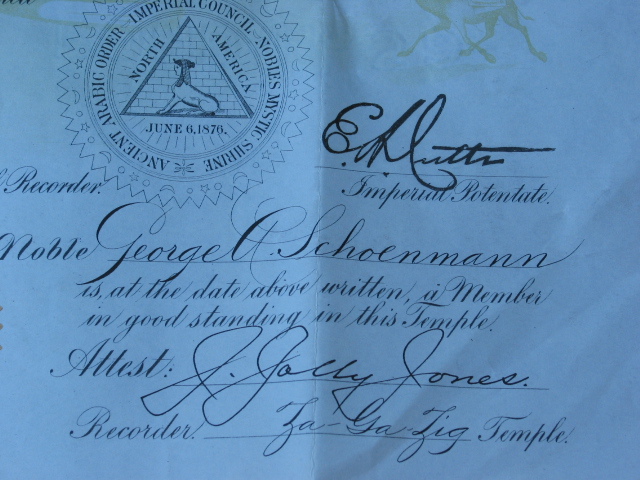 ANCIENT ARABIC ORDER · IMPERIAL COUNCIL · NOBLES MYSTIC SHRINE
NORTH AMERICA
JUNE 6, 1876.
Recorder.
Imperial Potentate.
Noble George A. Schoenmann
is, at the date above written, a Member
in good standing in this Temple.
Attest: J. Jolly Jones.
Recorder. Za-Ga-Zig Temple.